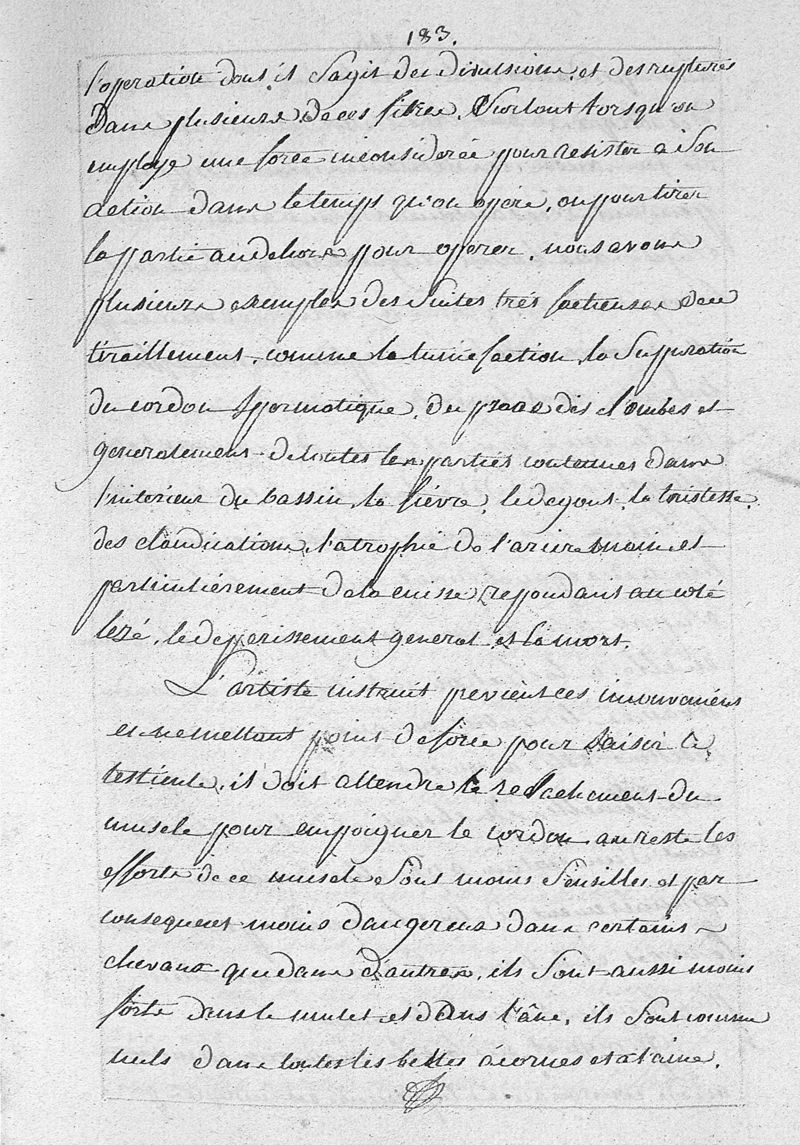 183.
l'operation dont il s'agit des divulsions, et des ruptures
Dans plusieurs de ces fibres, Surtout lorsqu'on
employe une force inconsiderée pour resister a son
action dans le temps qu'on opere, ou pour tirer
la partie au dehors pour operer, nous avons
plusieurs exemples des suites trés facheuses de ce
tiraillement, comme la tumefaction, la Suppuration
du cordon Spermatique, du psoas des lombes et
generalement de toutes les parties contenues dans
l'interieur du bassin, la fiévre, le degout, la tristesse,
des claudications, l'atrophie de l'ariere main et
particulièrement de la cuisse repondant au coté
lezé, le depérissement general, et la mort.
L'artiste instruit previent ces inconveniens
en ne mettant point de force pour saisir le
testicule, il doit attendre le relachement du
muscle pour empoigner le cordon, au reste les
efforts de ce muscle Sont moins Sensibles et par
consequent moins dangereux dans certains
chevaux que dans d'autres, ils Sont aussi moins
forts dans le mulet et dans l'âne, ils Sont comme
nuls dans toutes les bettes a cornes et a laine.